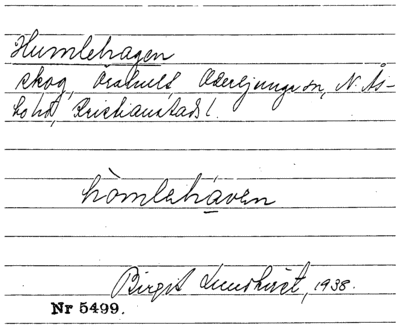 Humlehagen
skog, Örahult, Oderljunga sn, N. Ås-
bo hd, Kristianstads l.
hömlehaven
Birgit Lundkvist, 1938.
Nr 5499.